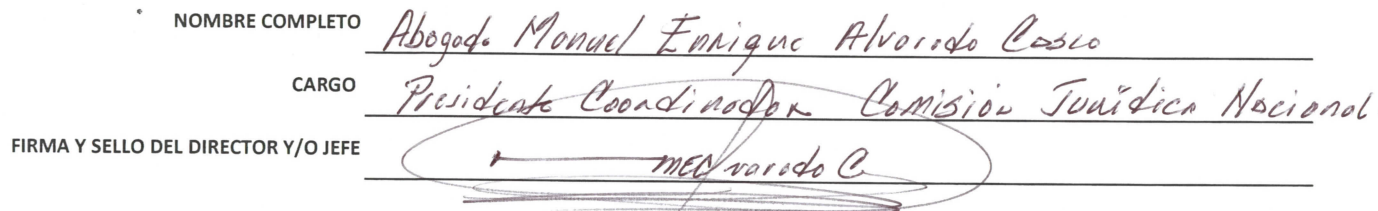 NOMBRE COMPLETO Abogado Manuel Enrique Alvarado Casco
CARGO Presidente Coordinador Comisión Jurídica Nacional
FIRMA Y SELLO DEL DIRECTOR Y/O JEFE MEAlvarado C.